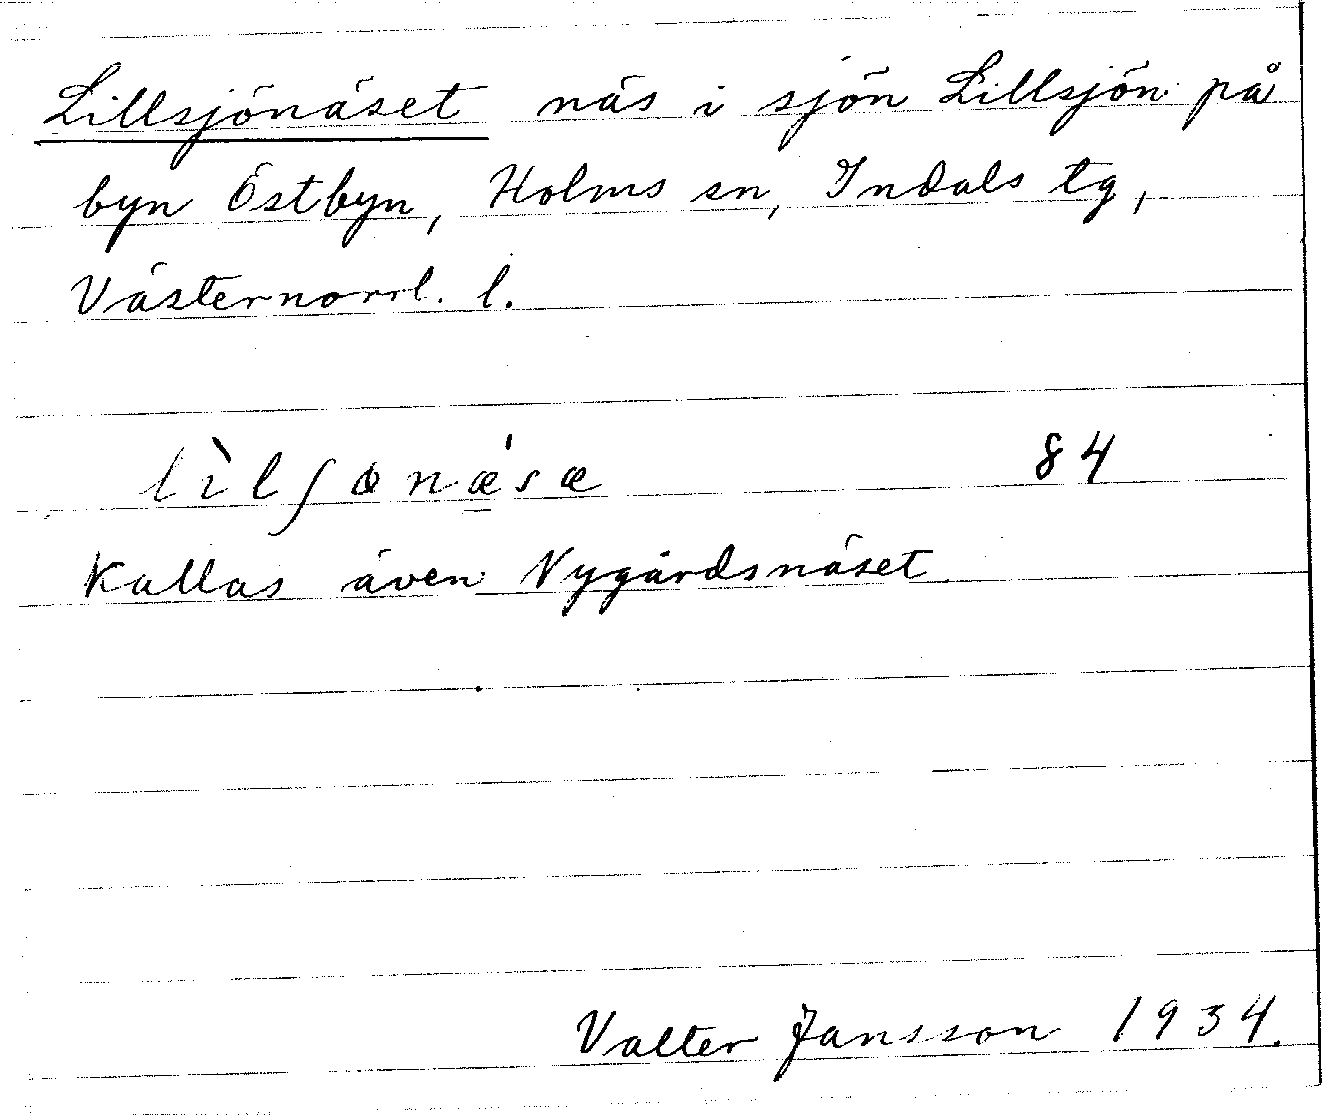 Lillsjönäset näs i sjön Lillsjön på
byn Östbyn, Holms sn, Indals tg,
Västernorrl. l.
lìlʃɵnǽ̠sæ 84
Kallas även Nygårdsnäset
Valter Jansson 1934.